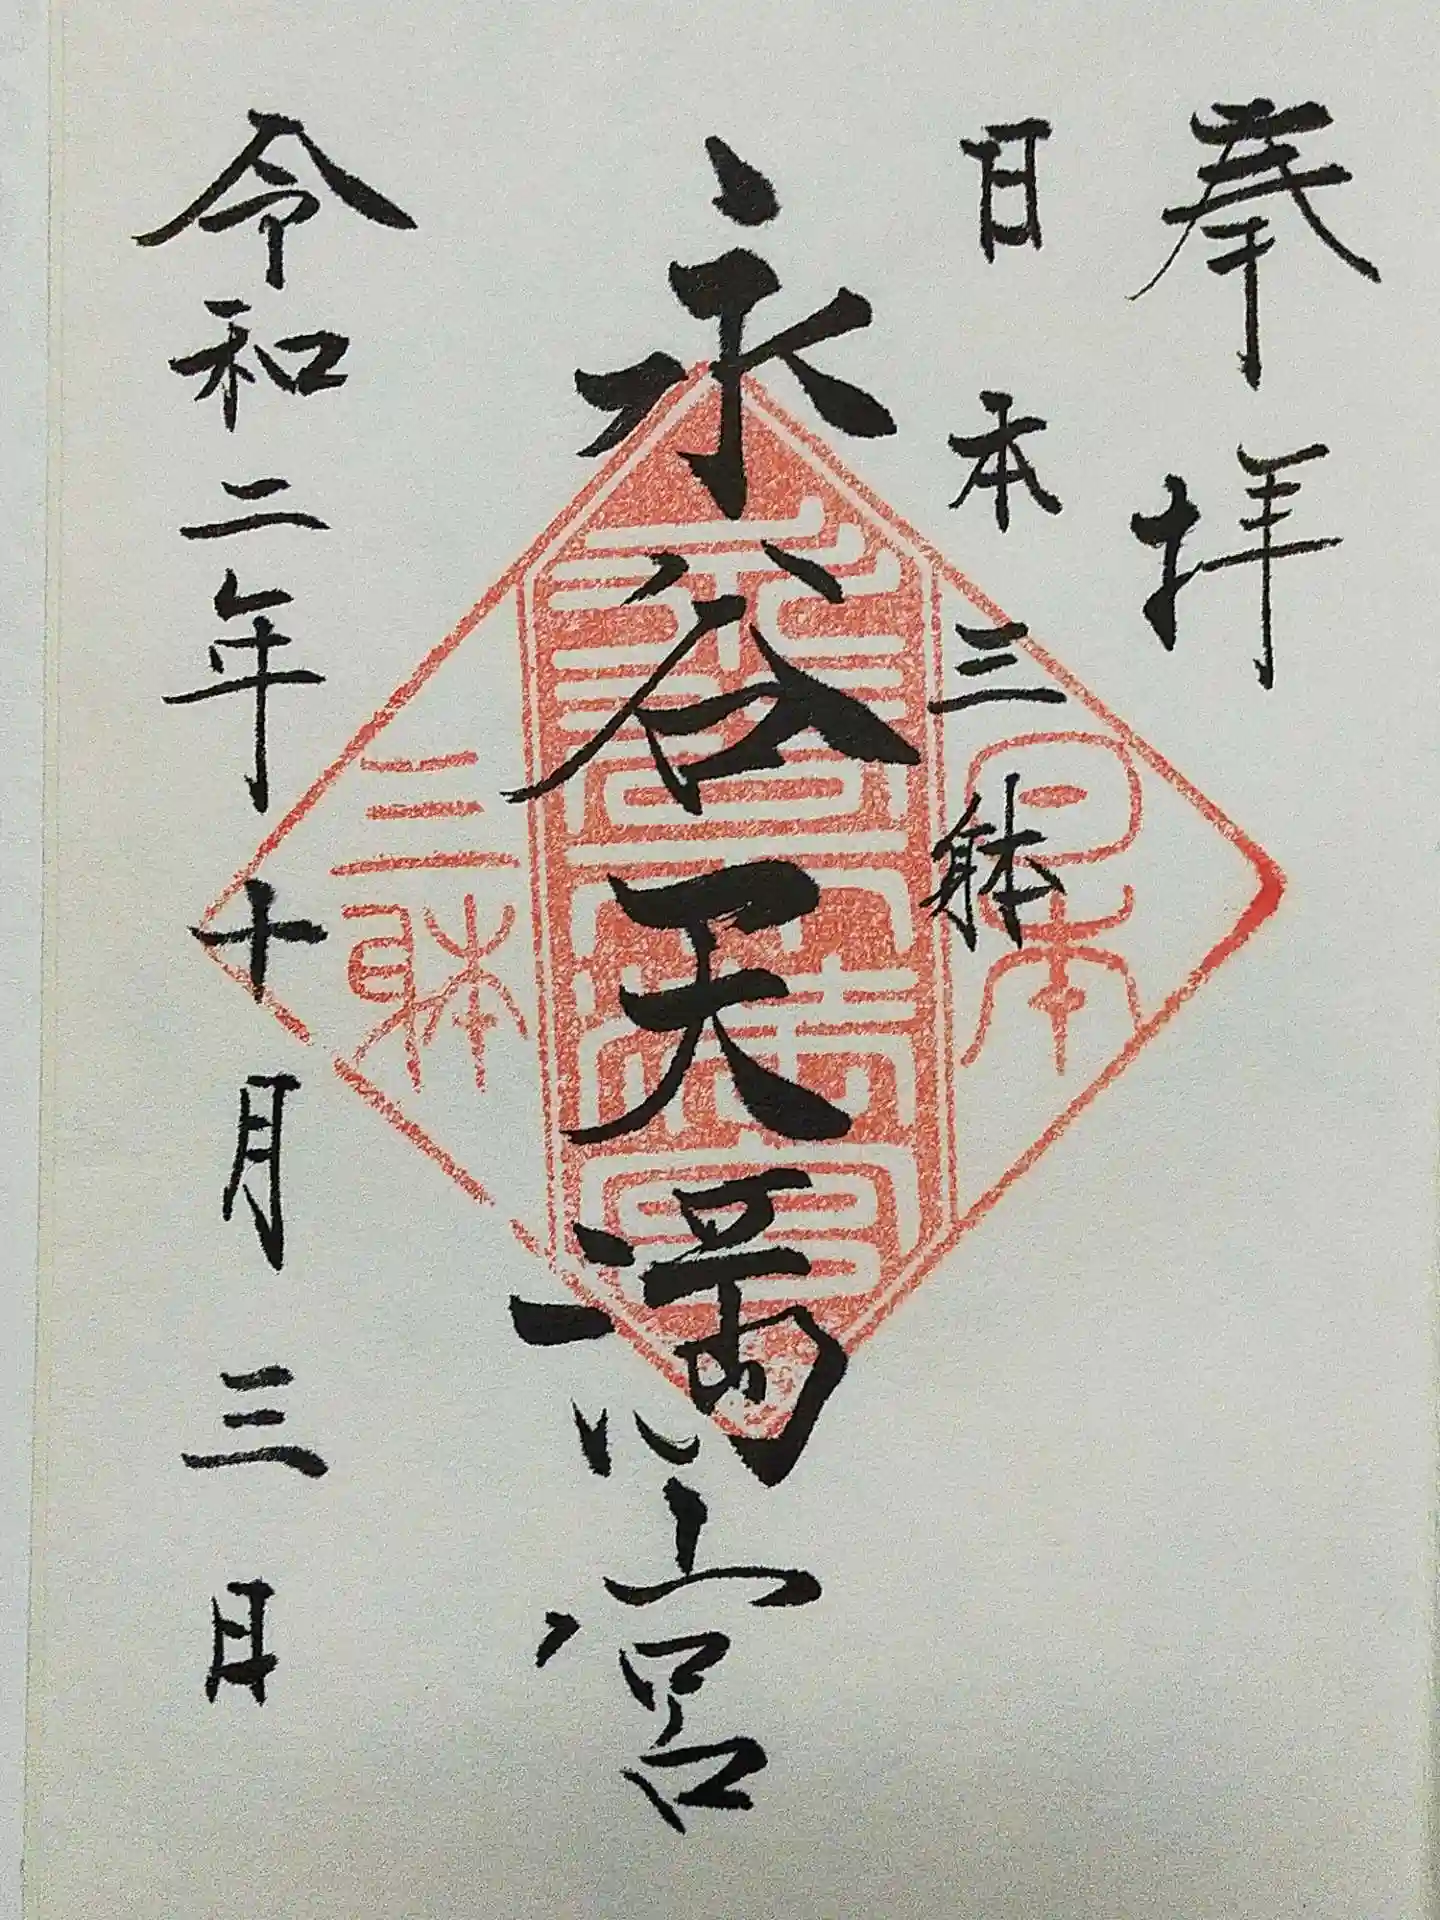 奉拝
日本三躰
永谷天満宮
令和二年十月三日
日本
永谷天満宮
三躰